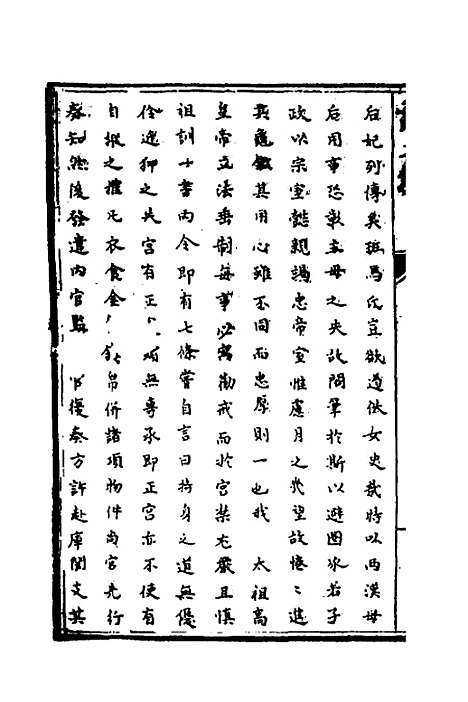 后妃列傳英斑馬氏豈欲遵依女史哉時以西漢母
后用事恐彰主母之失故閣筆於斯以避國家君子
政以宗室懿親竭忠帝室惟慮月之幾望故惓惓進
其 其用心雖不同而忠厚則一也我 太祖高
皇帝立法垂制每事必寓勸戒而於宮禁尤嚴且慎
祖訓十書內令即有七條嘗自言曰持身之道無優
伶 狎之失宮有正 無專承即正宮亦不使有
自 之權凡衣食金 帛併諸項物件尚宮先行
奏知然後發遣內官監 官復奏方許赴庫關支其